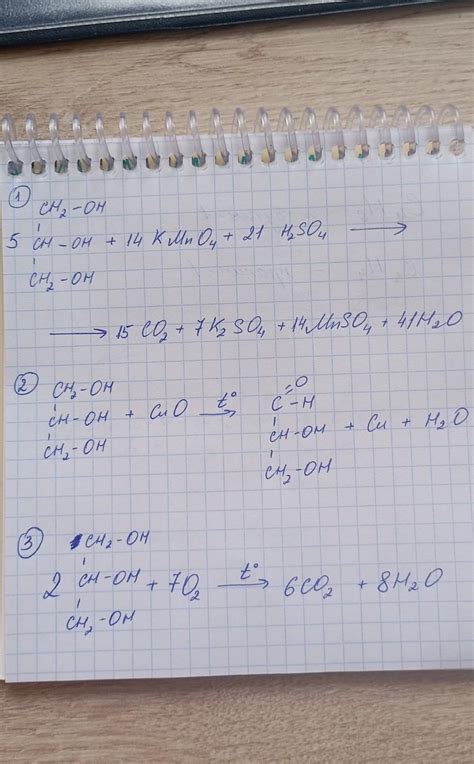 ①
CH₂-OH
5 CH-OH + 14 KMnO₄ + 21 H₂SO₄ ⟶
CH₂-OH
⟶ 15 CO₂ + 7K₂SO₄ + 14MnSO₄ + 41H₂O
②
CH₂-OH
CH-OH + CuO
CH₂-OH
t°
⟶
O
C-H
CH-OH + Cu + H₂O
CH₂-OH
③
CH₂-OH
2 CH-OH + 7O₂ ⟶ 6CO₂ + 8H₂O
t°
CH₂-OH